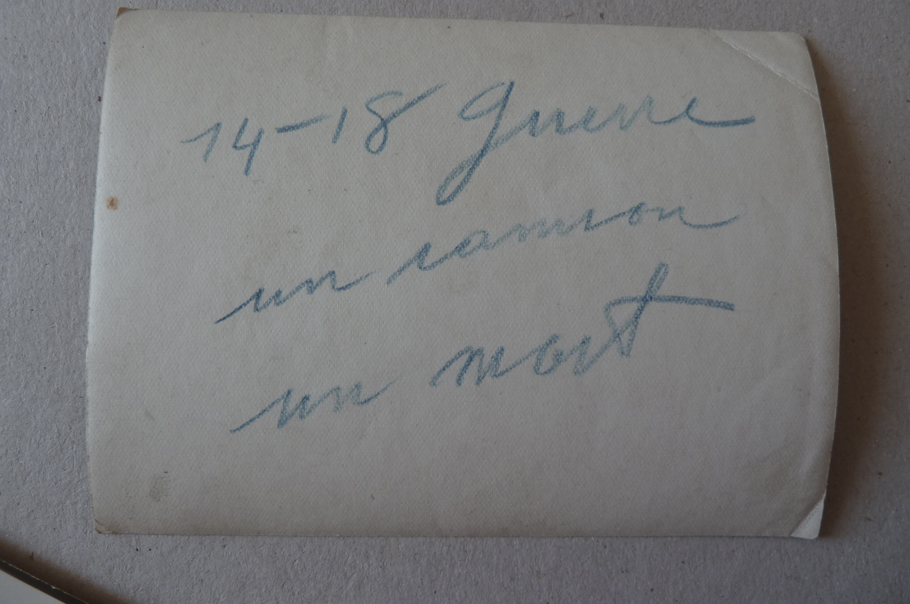 14-18 Guerre
un camion
un mort